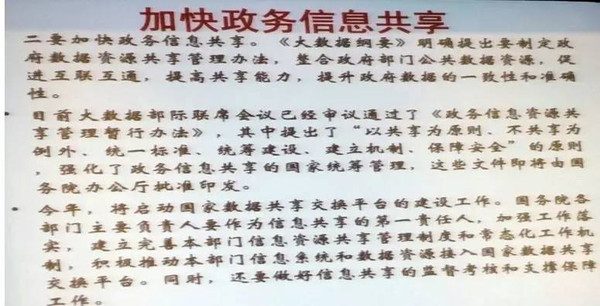 加快政务信息共享
二要加快政务信息共享。《大数据纲要》明确提出要制定政
府数据资源共享管理办法，整合政府部门公共数据资源，促
进互联互通，提高共享能力，提升政府数据的一致性和准确
性。
目前大数据部际联席会议已经审议通过了《政务信息资源共
享管理暂行办法》，其中提出了“以共享为原则、不共享为
例外、统一标准、统筹建设、建立机制、保障安全”的原则
，强化了政务信息共享的国家统筹管理，这些文件即将由国
务院办公厅批准印发。
今年，将启动国家数据共享交换平台的建设工作。国务院各
部门主要负责人要作为信息共享的第一责任人，加强工作落
实，建立完善本部门信息资源共享管理制度和常态化工作机
制，积极推动本部门信息系统和数据资源接入国家数据共享
交换平台。同时，还要做好信息共享的监督考核和支撑保障
工作。